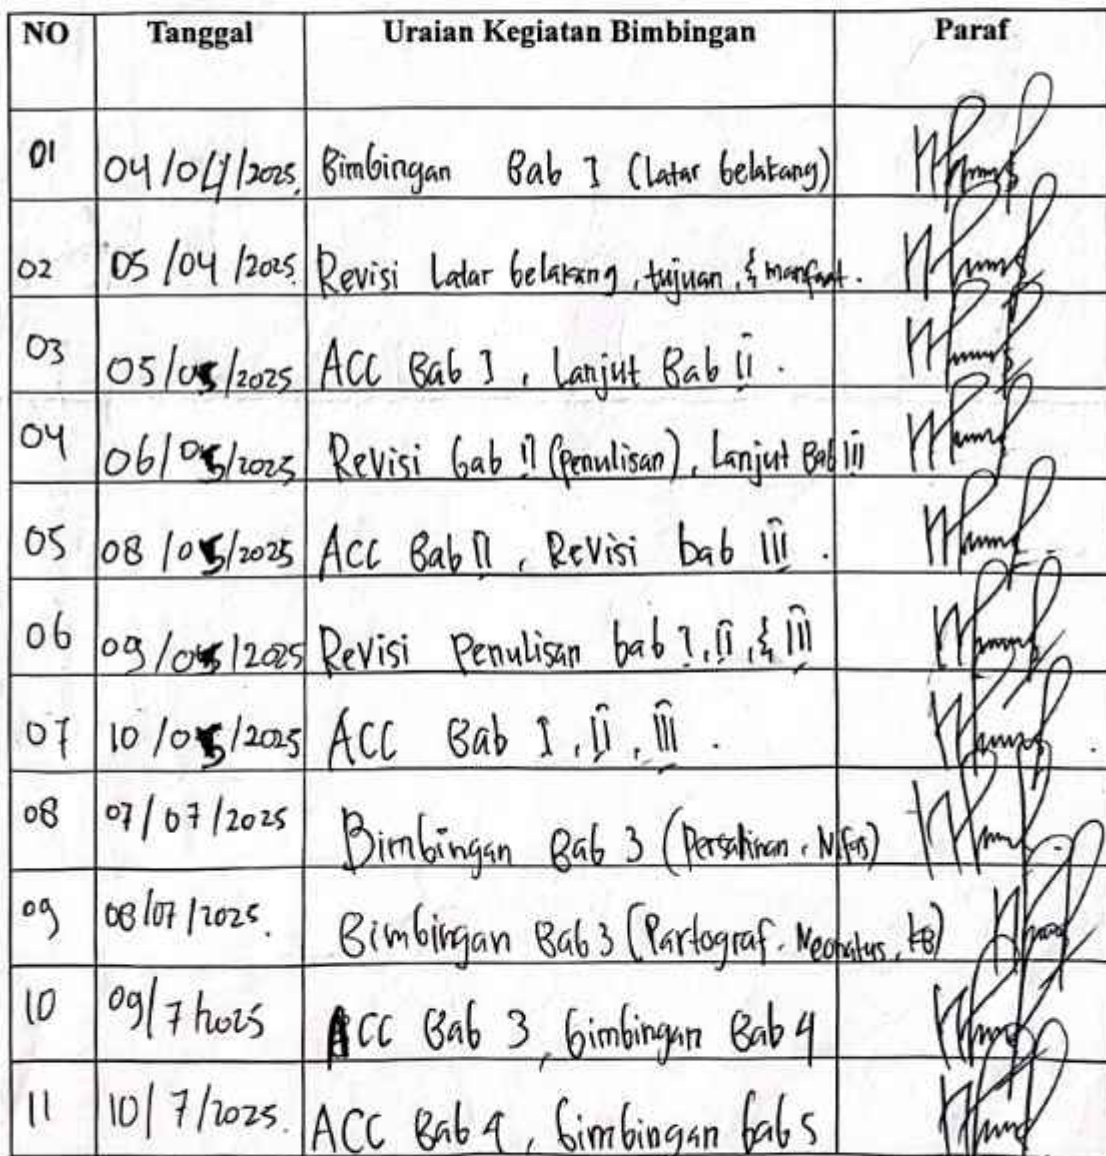 NO Tanggal Uraian Kegiatan Bimbingan Paraf
01 04/04/2025. Bimbingan Bab I (Latar belakang)
02 05/04/2025 Revisi Latar belakang, tujuan, & manfaat.
03 05/05/2025 ACC Bab I, Lanjut Bab II.
04 06/05/2025 Revisi bab II (penulisan), Lanjut Bab III
05 08/05/2025 ACC Bab II, Revisi bab III.
06 09/05/2025 Revisi Penulisan bab I, II, & III
07 10/05/2025 ACC Bab I, II, III.
08 07/07/2025 Bimbingan Bab 3 (Persalinan, Nifas)
09 08/07/2025. Bimbingan Bab 3 (Partograf, Neonatus, KB)
10 09/7/2025 ACC Bab 3, bimbingan Bab 4
11 10/7/2025. ACC Bab 4, bimbingan bab 5